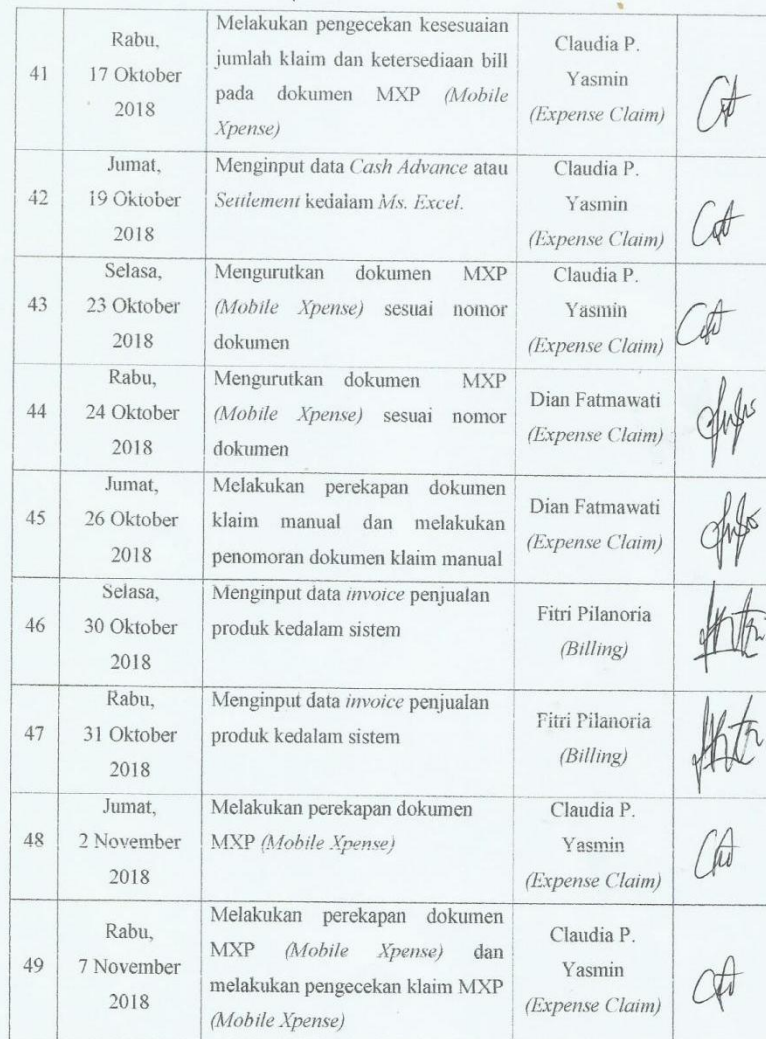 41
Rabu,
17 Oktober
2018
Melakukan pengecekan kesesuaian
jumlah klaim dan ketersediaan bill
pada dokumen MXP (Mobile
Xpense)
Claudia P.
Yasmin
(Expense Claim)
42
Jumat,
19 Oktober
2018
Menginput data Cash Advance atau
Settlement kedalam Ms. Excel.
Claudia P.
Yasmin
(Expense Claim)
43
Selasa,
23 Oktober
2018
Mengurutkan dokumen MXP
(Mobile Xpense) sesuai nomor
dokumen
Claudia P.
Yasmin
(Expense Claim)
44
Rabu,
24 Oktober
2018
Mengurutkan dokumen MXP
(Mobile Xpense) sesuai nomor
dokumen
Dian Fatmawati
(Expense Claim)
45
Jumat,
26 Oktober
2018
Melakukan perekapan dokumen
klaim manual dan melakukan
penomoran dokumen klaim manual
Dian Fatmawati
(Expense Claim)
46
Selasa,
30 Oktober
2018
Menginput data invoice penjualan
produk kedalam sistem
Fitri Pilanoria
(Billing)
47
Rabu,
31 Oktober
2018
Menginput data invoice penjualan
produk kedalam sistem
Fitri Pilanoria
(Billing)
48
Jumat,
2 November
2018
Melakukan perekapan dokumen
MXP (Mobile Xpense)
Claudia P.
Yasmin
(Expense Claim)
49
Rabu,
7 November
2018
Melakukan perekapan dokumen
MXP (Mobile Xpense) dan
melakukan pengecekan klaim MXP
(Mobile Xpense)
Claudia P.
Yasmin
(Expense Claim)